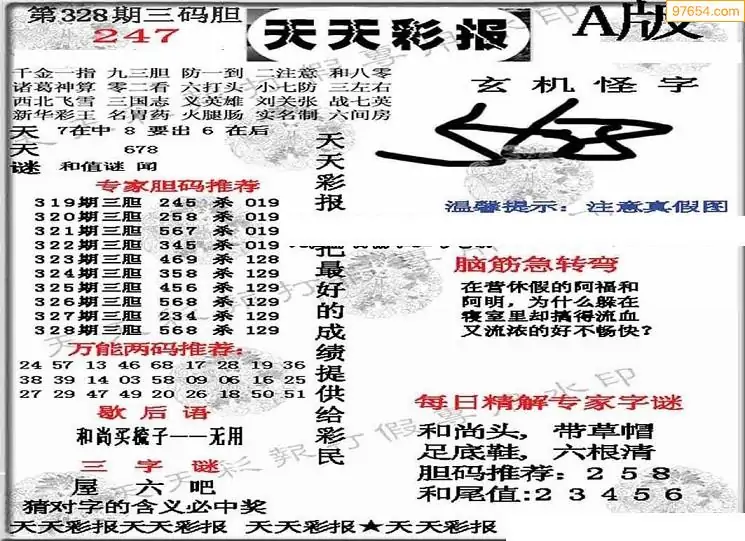 第328期三码胆
247
天天彩报
A版
97654.com
千金一指 九三胆 防一到 二注意 和八零
诸葛神算 零二看 六打头 小七防 三左右
西北飞雪 三国志 义英雄 刘关张 战七英
新华彩王 名胃药 火腿肠 实名制 六间房
天 7在中 8 要出 6 在后
天 678
谜 和值谜 闻
专家胆码推荐
319期三胆 245 杀 019
320期三胆 258 杀 019
321期三胆 567 杀 019
322期三胆 345 杀 019
323期三胆 469 杀 128
324期三胆 358 杀 129
325期三胆 456 杀 129
326期三胆 568 杀 129
327期三胆 234 杀 129
328期三胆 568 杀 129
万能两码推荐:
24 57 13 46 68 17 28 19 36
38 39 14 03 58 09 06 16 25
27 29 47 49 20 26 18 50 51
歇后语
和尚买梳子——无用
三字谜
屋 六 吧
猜对字的含义必中奖
天天彩报
把最好的成绩提供给彩民
玄机怪字
温馨提示: 注意真假图
脑筋急转弯
在营休假的阿福和
阿明，为什么躲在
寝室里却搞得流血
又流浓的好不畅快?
每日精解专家字谜
和尚头, 带草帽
足底鞋, 六根清
胆码推荐: 2 5 8
和尾值:2 3 4 5 6
天天彩报天天彩报 天天彩报★天天彩报